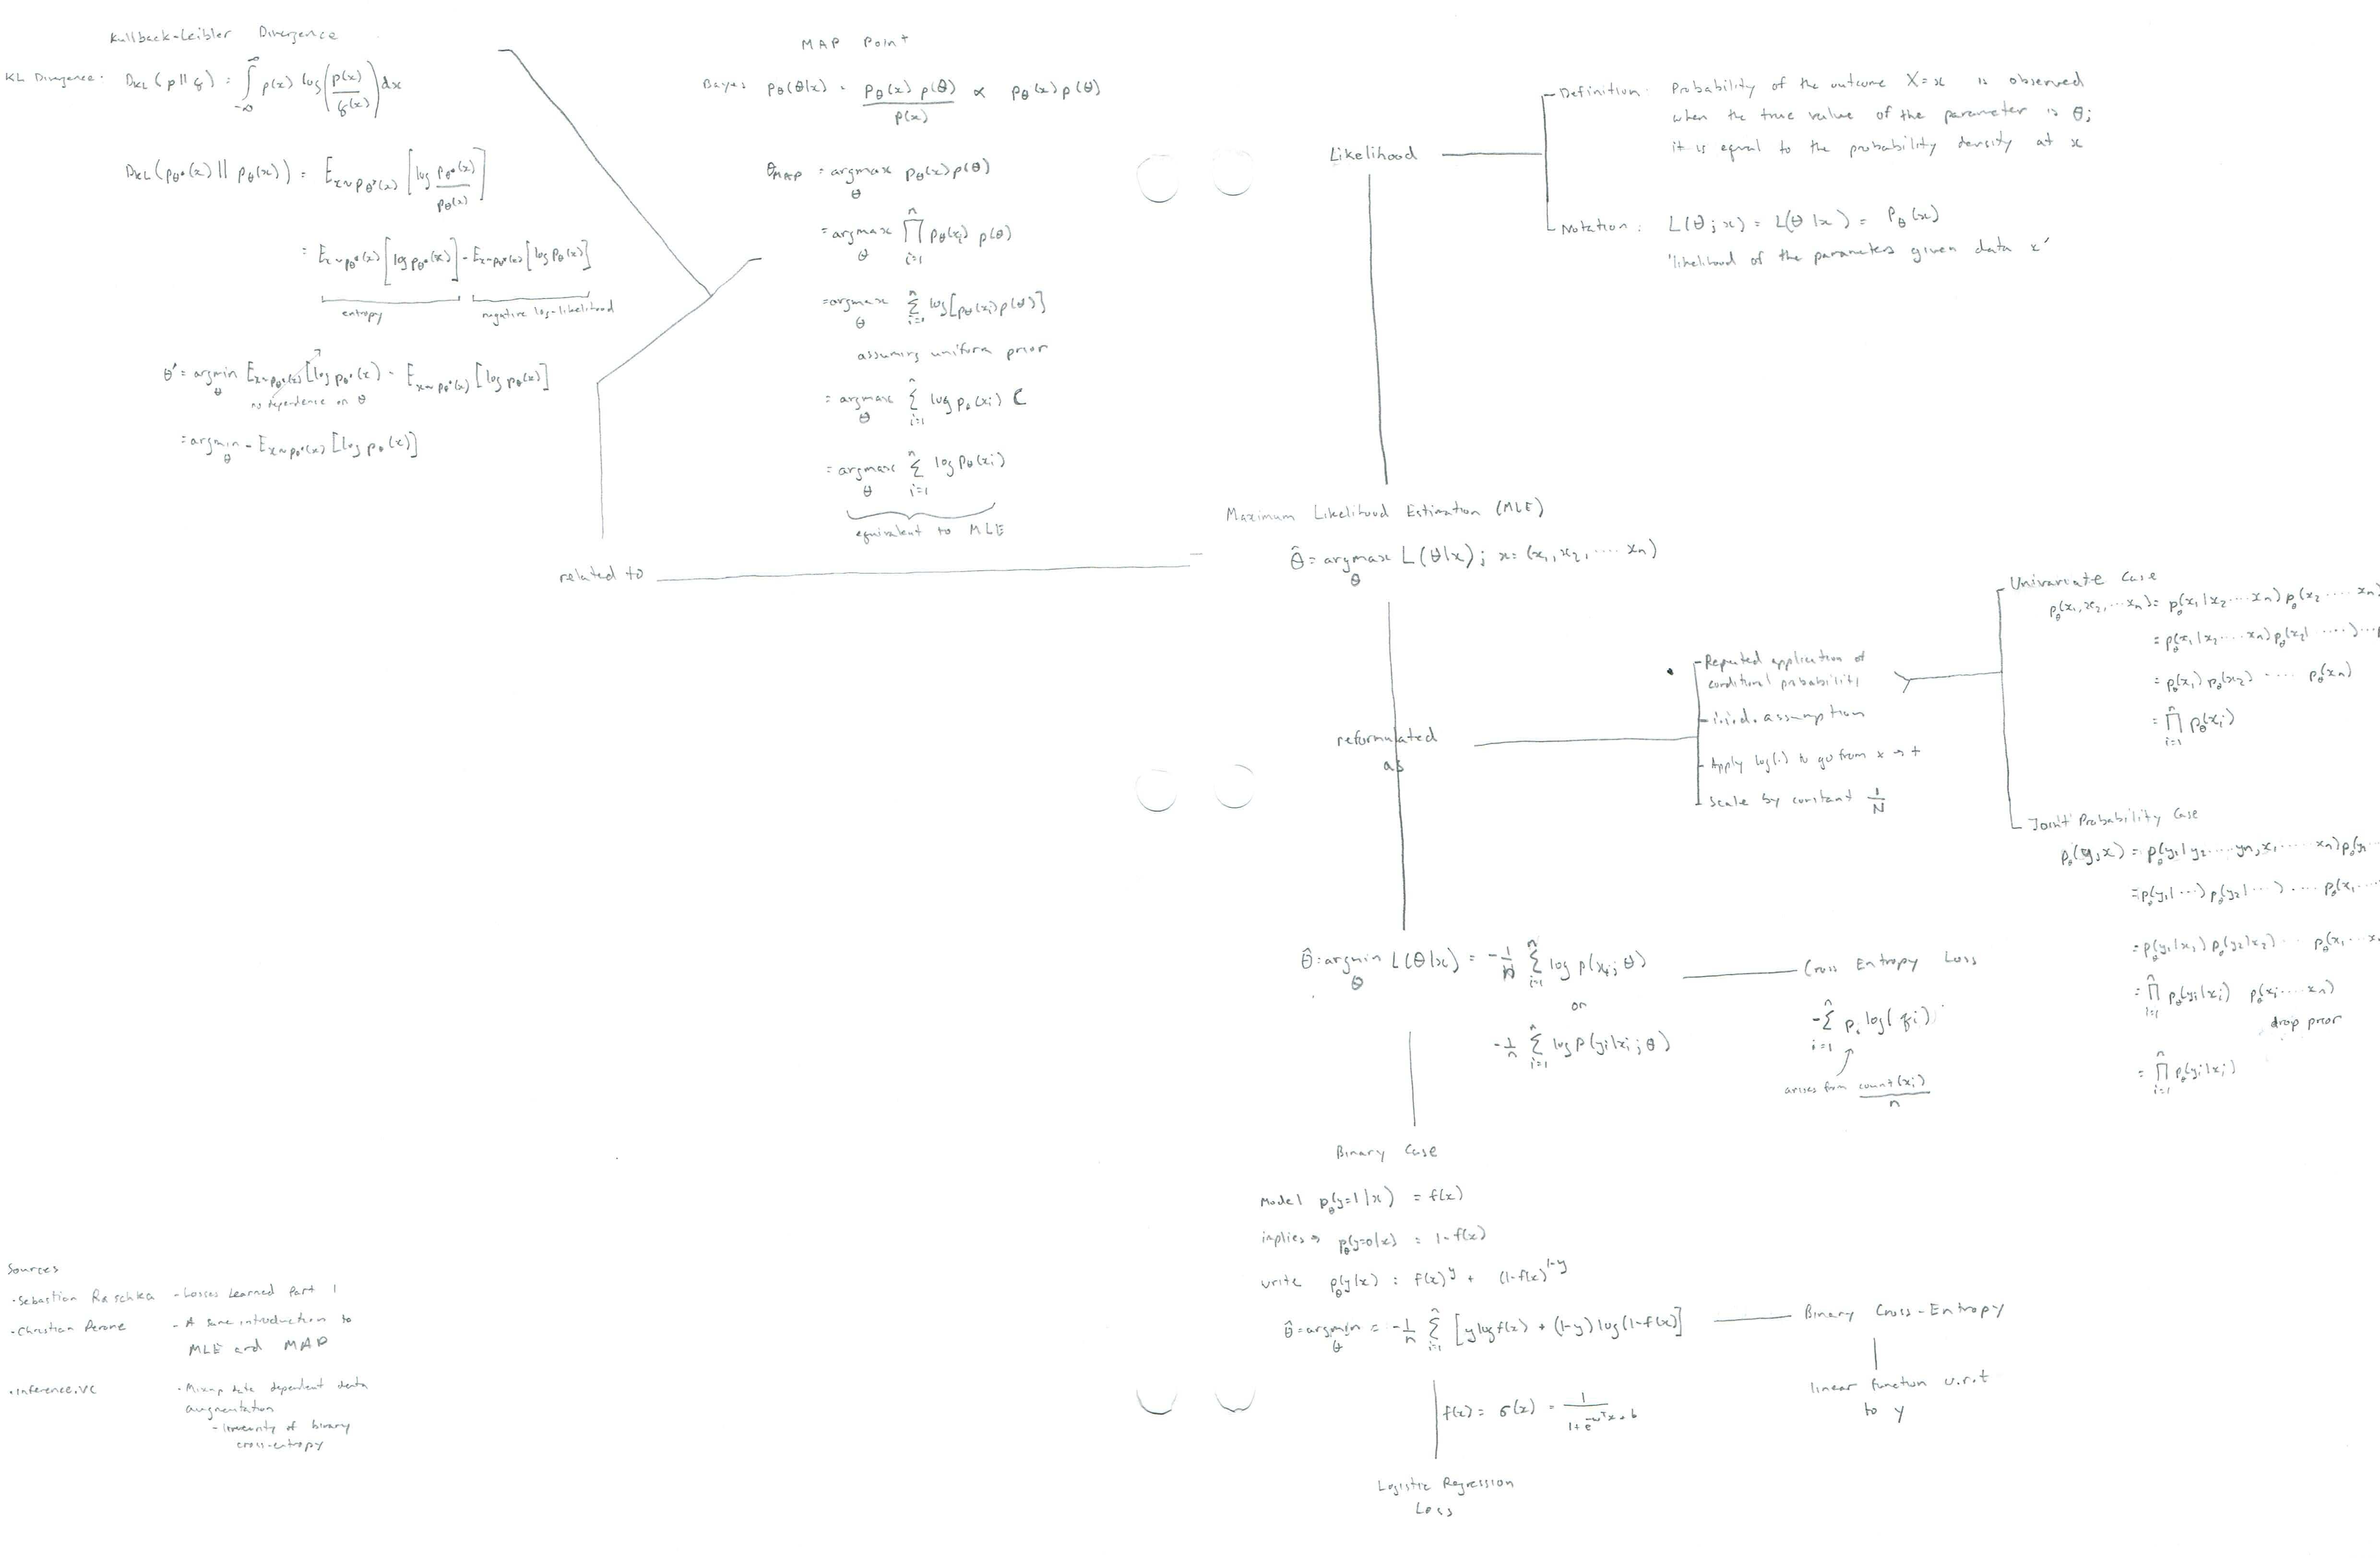 Kullback-Leibler Divergence
KL Divergence: D_KL(p||q) = ∫_{-∞}^{∞} p(x) log(p(x)/q(x)) dx
D_KL(p_θ*(x) || p_θ(x)) = E_{x~p_θ*(x)} [log p_θ*(x)/p_θ(x)]
= E_{x~p_θ*(x)} [log p_θ*(x)] - E_{x~p_θ*(x)} [log p_θ(x)]
entropy negative log-likelihood
θ' = argmin_θ E_{x~p_θ*(x)} [log p_θ*(x) - E_{x~p_θ*(x)} [log p_θ(x)]
no dependence on θ
= argmin_θ - E_{x~p_θ*(x)} [log p_θ(x)]
MAP Point
Bayes p_θ(θ|x) = p_θ(x) p(θ) / p(x) ∝ p_θ(x) p(θ)
θ_MAP = argmax_θ p_θ(x) p(θ)
= argmax_θ ∏_{i=1}^{n} p_θ(x_i) p(θ)
= argmax_θ Σ_{i=1}^{n} log[p_θ(x_i) p(θ)]
assuming uniform prior
= argmax_θ Σ_{i=1}^{n} log p_θ(x_i) C
= argmax_θ Σ_{i=1}^{n} log p_θ(x_i)
equivalent to MLE
related to
Likelihood
Definition: Probability of the outcome X=x is observed
when the true value of the parameter is θ;
it is equal to the probability density at x
Notation: L(θ;x) = L(θ|x) = P_θ(x)
'likelihood of the parameters given data x'
Maximum Likelihood Estimation (MLE)
θ̂ = argmax_θ L(θ|x); x = (x_1, x_2, .... x_n)
reformulated
as
- Repeated application of
conditional probability
- i.i.d. assumption
- Apply log(.) to go from x → +
- Scale by constant 1/N
Univariate Case
p_θ(x_1, x_2, ... x_n) = p_θ(x_1|x_2 .... x_n) p_θ(x_2 .... x_n)
= p_θ(x_1|x_2 .... x_n) p_θ(x_2| .....) ...
= p_θ(x_1) p_θ(x_2) - .... p_θ(x_n)
= ∏_{i=1}^{n} p_θ(x_i)
Joint Probability Case
p_θ(y,x) = p_θ(y_1|y_2 .... y_n, x_1 ..... x_n) p_θ(y_1 ..
= p_θ(y_1|...) p_θ(y_2|...) .... p_θ(x_1 ....
= p_θ(y_1|x_1) p_θ(y_2|x_2) ... p_θ(x_1 ... x_n
= ∏_{i=1}^{n} p_θ(y_i|x_i) p_θ(x_i .... x_n)
drop prior
= ∏_{i=1}^{n} p_θ(y_i|x_i)
θ̂ = argmin_θ L(θ|x) = -1/n Σ_{i=1}^{n} log p(x_i; θ)
or
-1/n Σ_{i=1}^{n} log p(y_i|x_i; θ)
Cross Entropy Loss
-Σ_{i=1}^{n} p_i log(q_i)
arises from count(x_i)/n
Binary Case
Model p_θ(y=1|x) = f(x)
implies → p_θ(y=0|x) = 1-f(x)
write p_θ(y|x) = f(x)^y + (1-f(x)^{1-y}
θ̂ = argmin_θ = -1/n Σ_{i=1}^{n} [y log f(x) + (1-y) log(1-f(x)]
Binary Cross-Entropy
linear function w.r.t
to y
f(x) = σ(x) = 1/(1+e^{-w^T x + b})
Logistic Regression
Loss
Sources
• Sebastian Raschka - Losses Learned Part 1
• Christian Perone - A sane introduction to
MLE and MAP
• Inference.VC - Mixup data dependent data
augmentation
- linearity of binary
cross-entropy